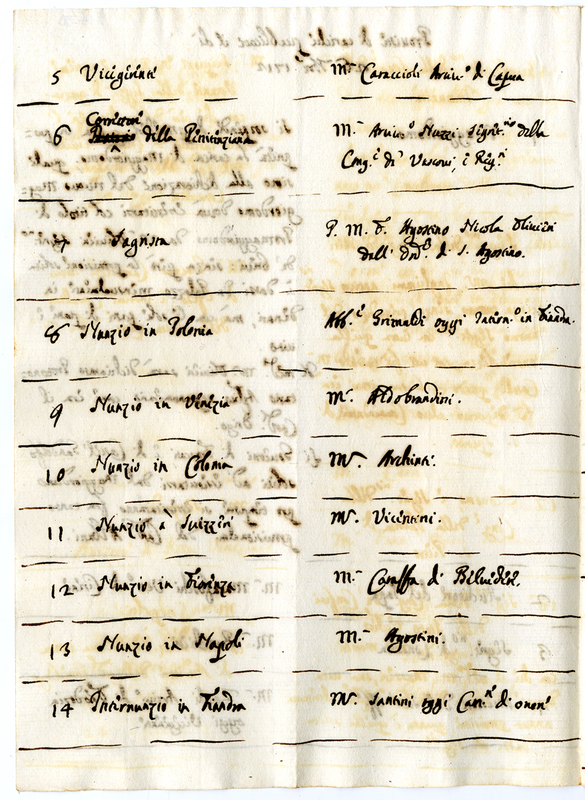 5 Vicegerente M.r Caraccioli Arciv.o di Capua
Correttore
6 della Penitenziaria M.r Arciv.o Nuzzi. Segret.rio della
Cong.e de' Vescovi, e Reg.i
7 Sagrista P. M. F. Agostino Nicola Olivieri
dell' Ord.e di S. Agostino.
8 Nunzio in Polonia Abb.e Grimaldi oggi Intern.o in Fiandra.
9 Nunzio in Venezia M.r Aldobrandini.
10 Nunzio in Colonia M.r Archinti.
11 Nunzio a' Suizzeri M.r Vicentini.
12 Nunzio in Fiorenza M.r Caraffa di Belvedere.
13 Nunzio in Napoli M.r Agostini.
14 Internunzio in Fiandra M.r Santini oggi Cam.re di onore